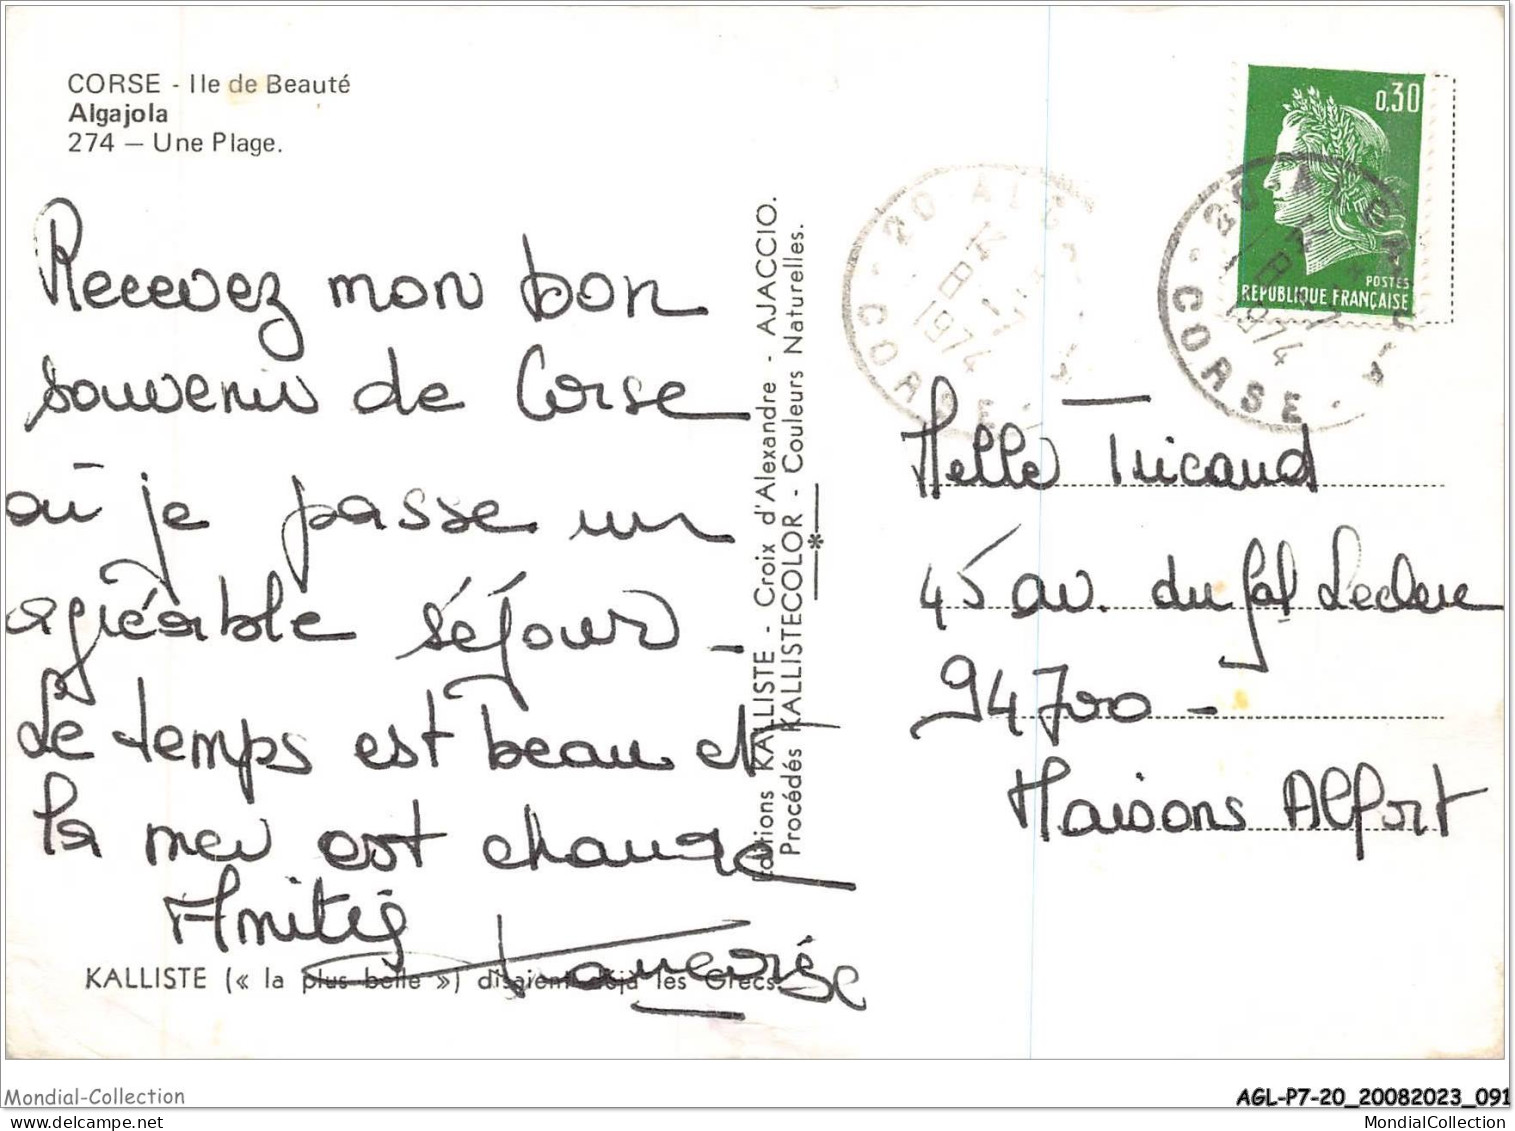 CORSE - Ile de Beauté
Algajola
274 — Une Plage.
Recevez mon bon
souvenir de Corse
où je passe un
agréable séjour _
Le temps est beau et
la mer est chaude
Amitiés
KALLISTE (« la plus belle ») disaient déjà les Grecs.
Editions KALLISTE - Croix d'Alexandre - AJACCIO.
Procédés KALLISTECOLOR - Couleurs Naturelles.
0,30
POSTES
REPUBLIQUE FRANÇAISE
20 ALG
1974
CORSE
20 ALGAJOLA
1974
CORSE
Melle Tricaud
45 av. du Gal Leclerc
94700 -
Maisons Alfort
Mondial-Collection
AGL-P7-20_20082023_091
MondialCollection